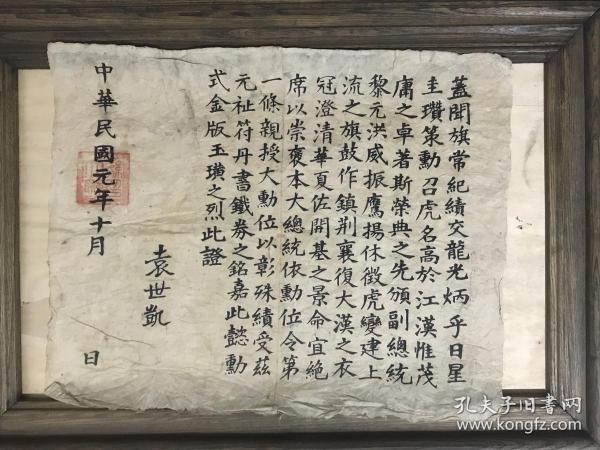 蓋聞旂常紀績交龍光炳乎日星
圭瓚策勳召虎名高於江漢惟茂
庸之卓著斯榮典之先頒副總統
黎元洪威振鷹揚休徵虎變建上
流之旗鼓作鎮荆襄復大漢之衣
冠澄清華夏佐開基之景命宜絶
席以崇褒本大總統依勳位令第
一條親授大勳位以彰殊績受茲
元祉符丹書鐵券之銘嘉此懿勳
式金版玉璜之烈此證
袁世凱
中華民國元年十月
日
孔夫子旧書网
www.kongfz.com